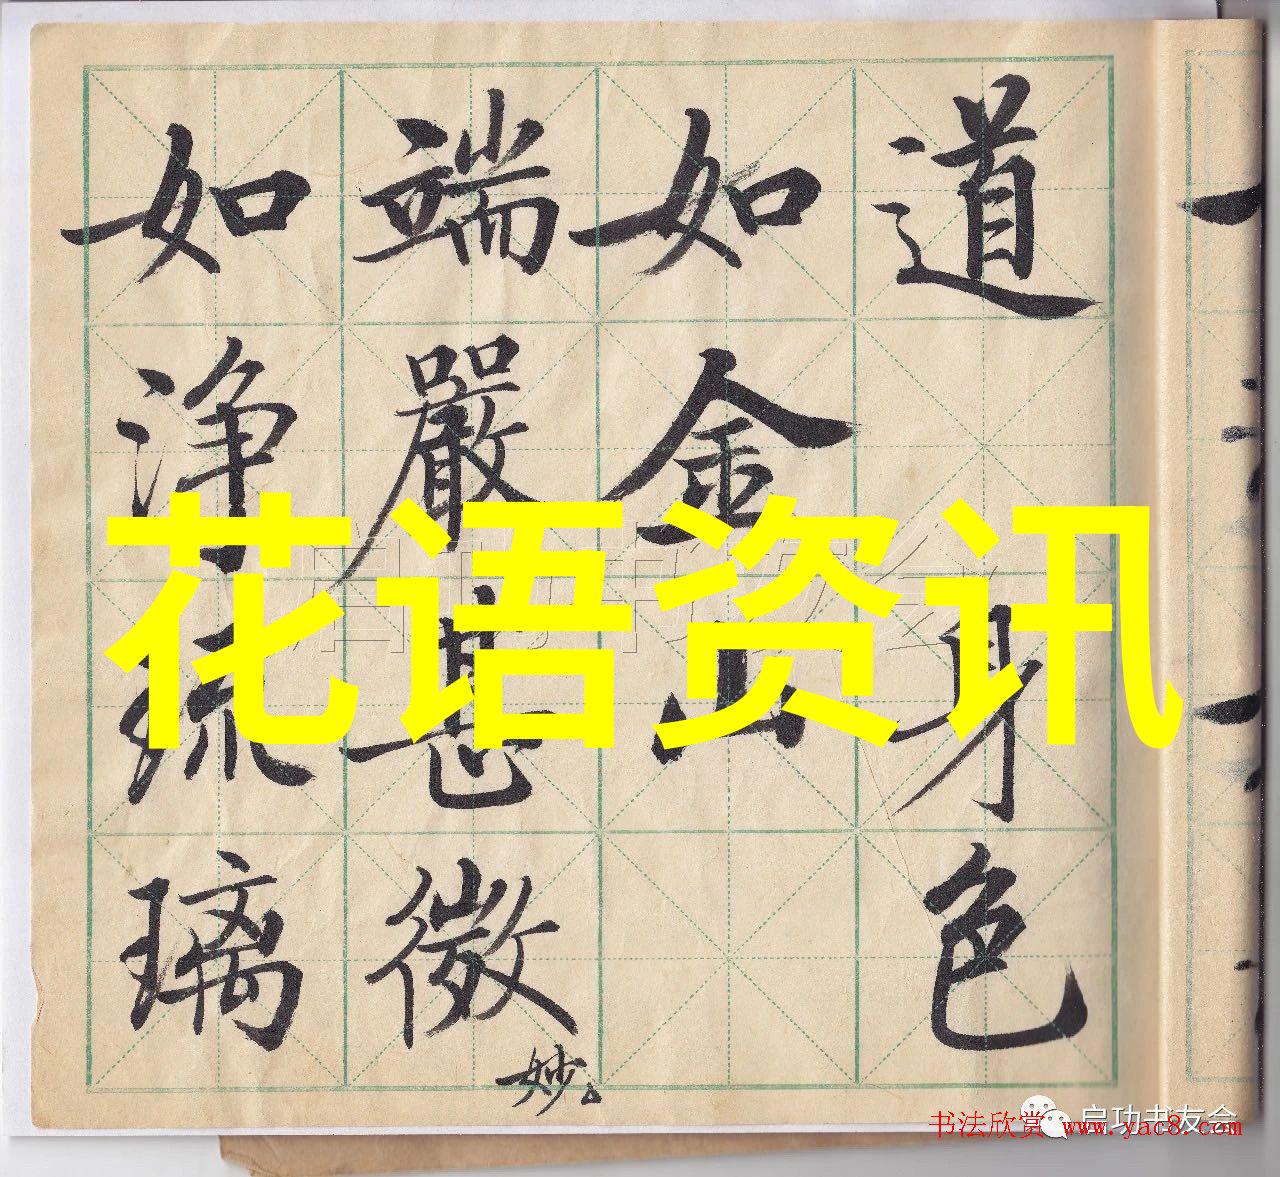 道
身色
如金山
端嚴甚微妙
如淨琉璃
花语资讯
启功书友会
书法欣赏 www.yac8.com